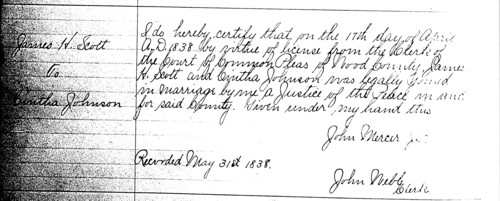 James H. Scott
To
Cintha Johnson
I do hereby certify that on the 17th day of April
A.D. 1838 by virtue of license from the Clerk of
the Court of Common Pleas of Wood County, James
H. Scott and Cintha Johnson was legally joined
in marriage by me a Justice of the Peace in and
for said County. Given under my hand this
John Mercer J.P.
Recorded May 31st 1838.
John Webb
Clerk